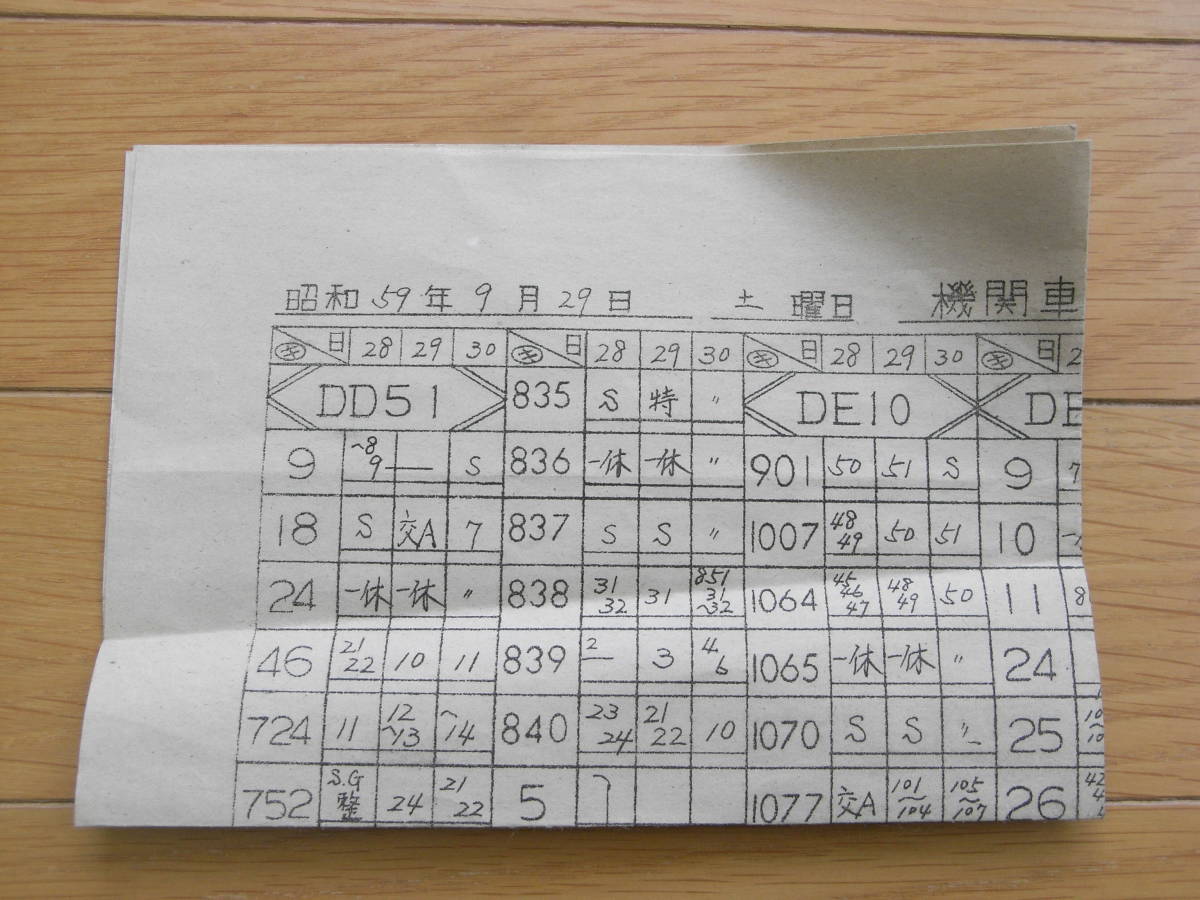 昭和59年9月29日 土曜日 機関車
日 28 29 30 日 28 29 30 日 28 29 30 日 2
DD51 835 S 特 〃 DE10 DE
9 ~8 9 — S 836 一休 一休 〃 901 50 51 S 9 7
18 S 交A 7 837 S S 〃 1007 48 49 50 51 10
24 一休 一休 〃 838 31 32 31 851 31 ~32 1064 45 46 47 48 49 50 11 8
46 21 22 10 11 839 2 — 3 4 6 1065 一休 一休 〃 24
724 11 12 ~13 ~14 840 23 24 21 22 10 1070 S S 〃 25 10 ~ 10
752 S.G 整 24 21 22 5 1077 交A 101 ~ 104 105 ~ 107 26 42 4